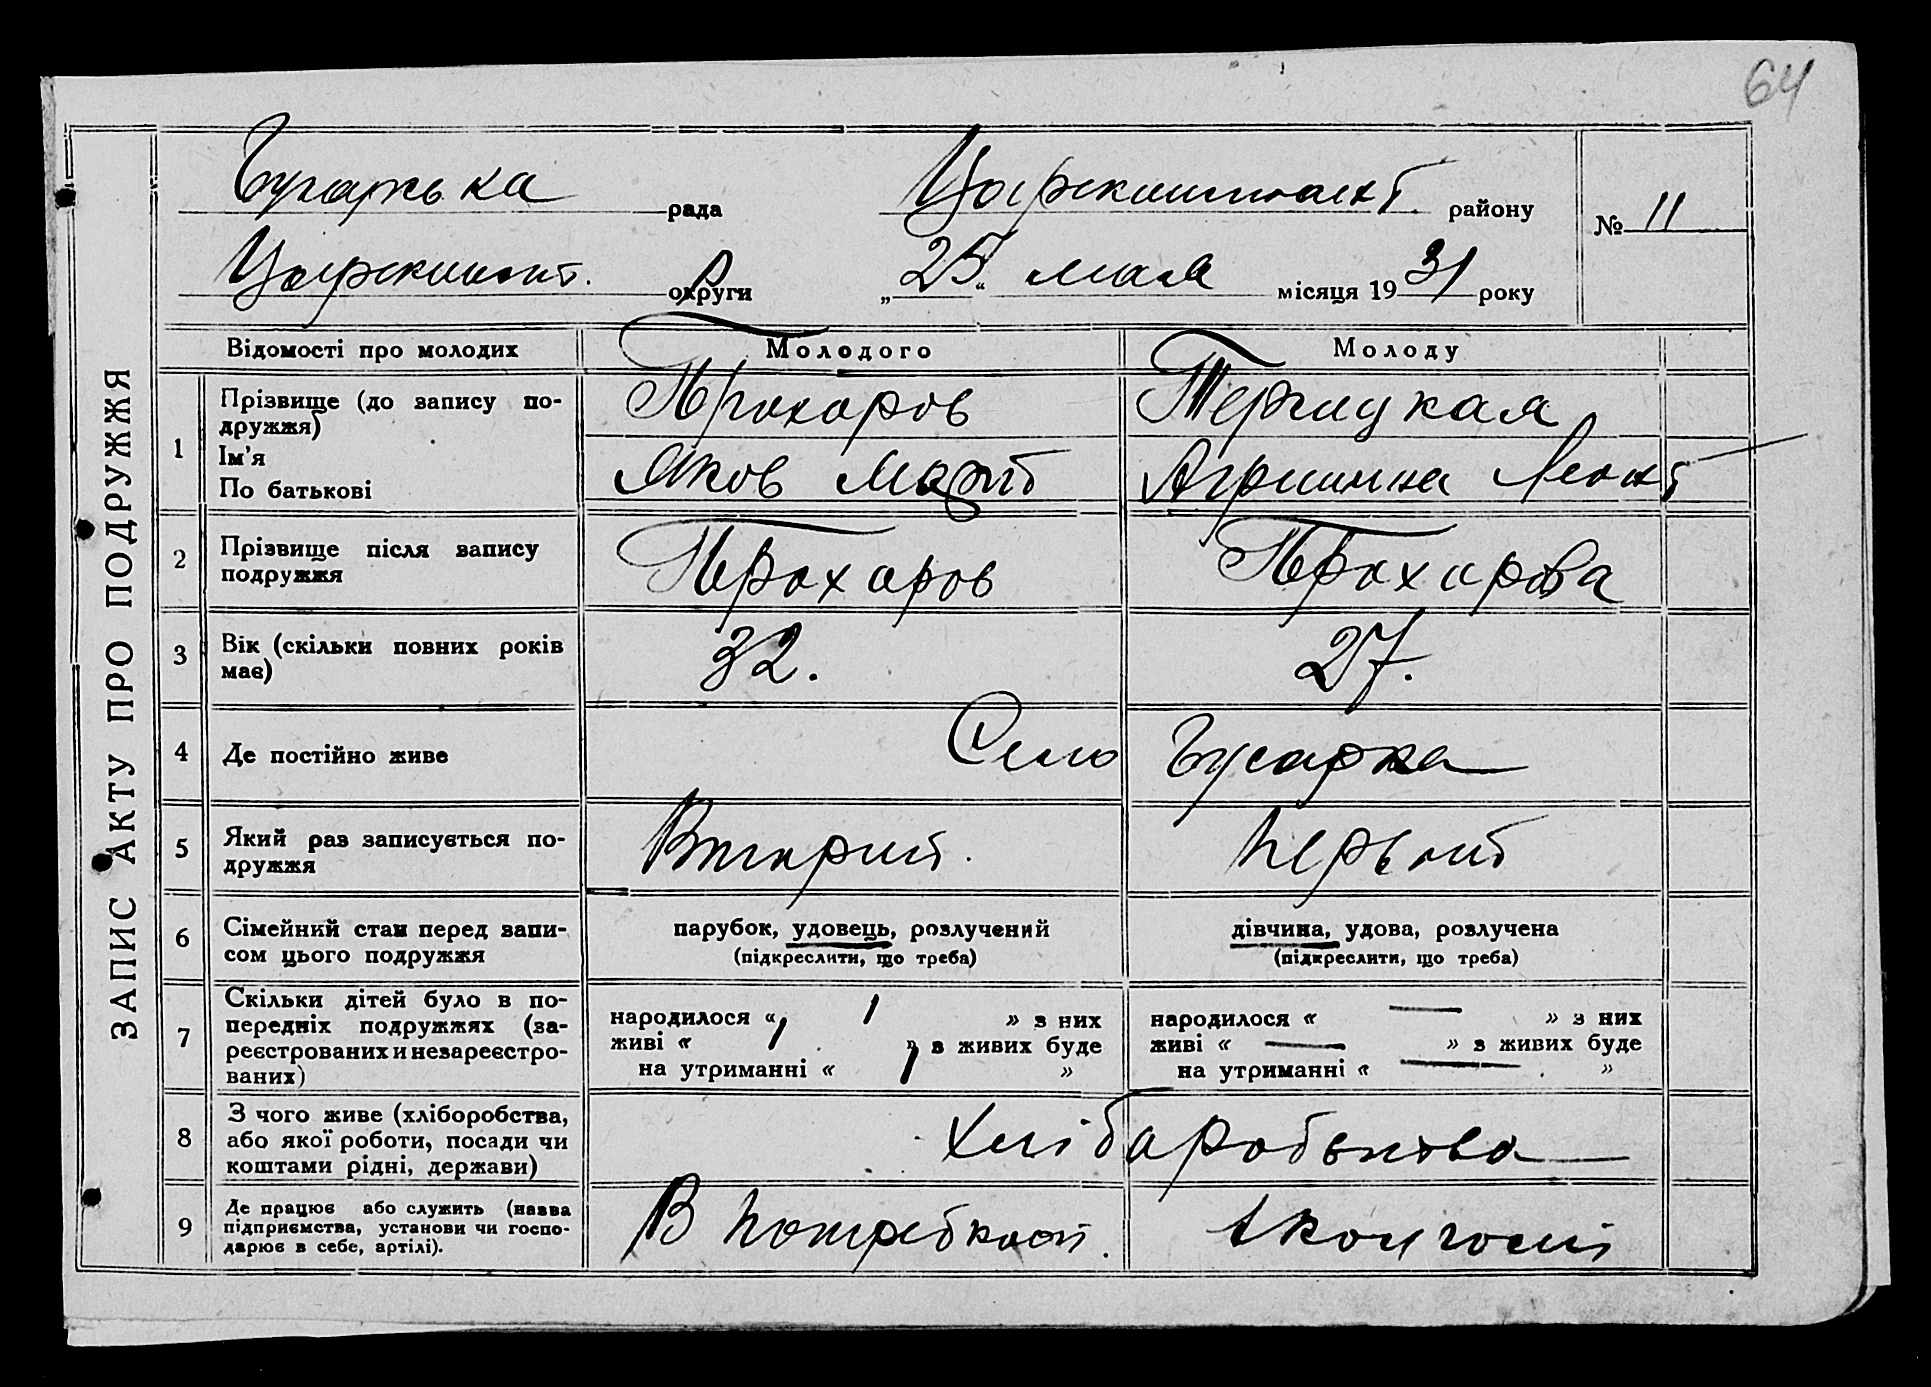 64
ЗАПИС АКТУ ПРО ПОДРУЖЖЯ
рада району
№ 11
округи „25“ мая місяця 1931 року
Відомості про молодих Молодого Молоду
1 Прізвище (до запису по-
дружжя)
Ім'я
По батькові
Прохоров
Яков
Агрипина
2 Прізвище після запису
подружжя
Прохоров Прохорова
3 Вік (скільки повних років
має)
32. 27.
4 Де постійно живе
Село
5 Який раз записується по-
дружжя
Вторий. Первий
6 Сімейний стан перед запи-
сом цього подружжя
парубок, удовець, розлучений
(підкреслити, що треба)
дівчина, удова, розлучена
(підкреслити, що треба)
7 Скільки дітей було в по-
передніх подружжях (за-
реєстрованих и незареєстро-
ваних)
народилося « 1 » з них
живі « 1 » з живих буде
на утриманні « 1 »
народилося « — » з них
живі « — » з живих буде
на утриманні « — »
8 З чого живе (хліборобства,
або якої роботи, посади чи
коштами рідні, держави)
9 Де працює або служить (назва
підприємства, установи чи госпо-
дарює в себе, артілі).
В